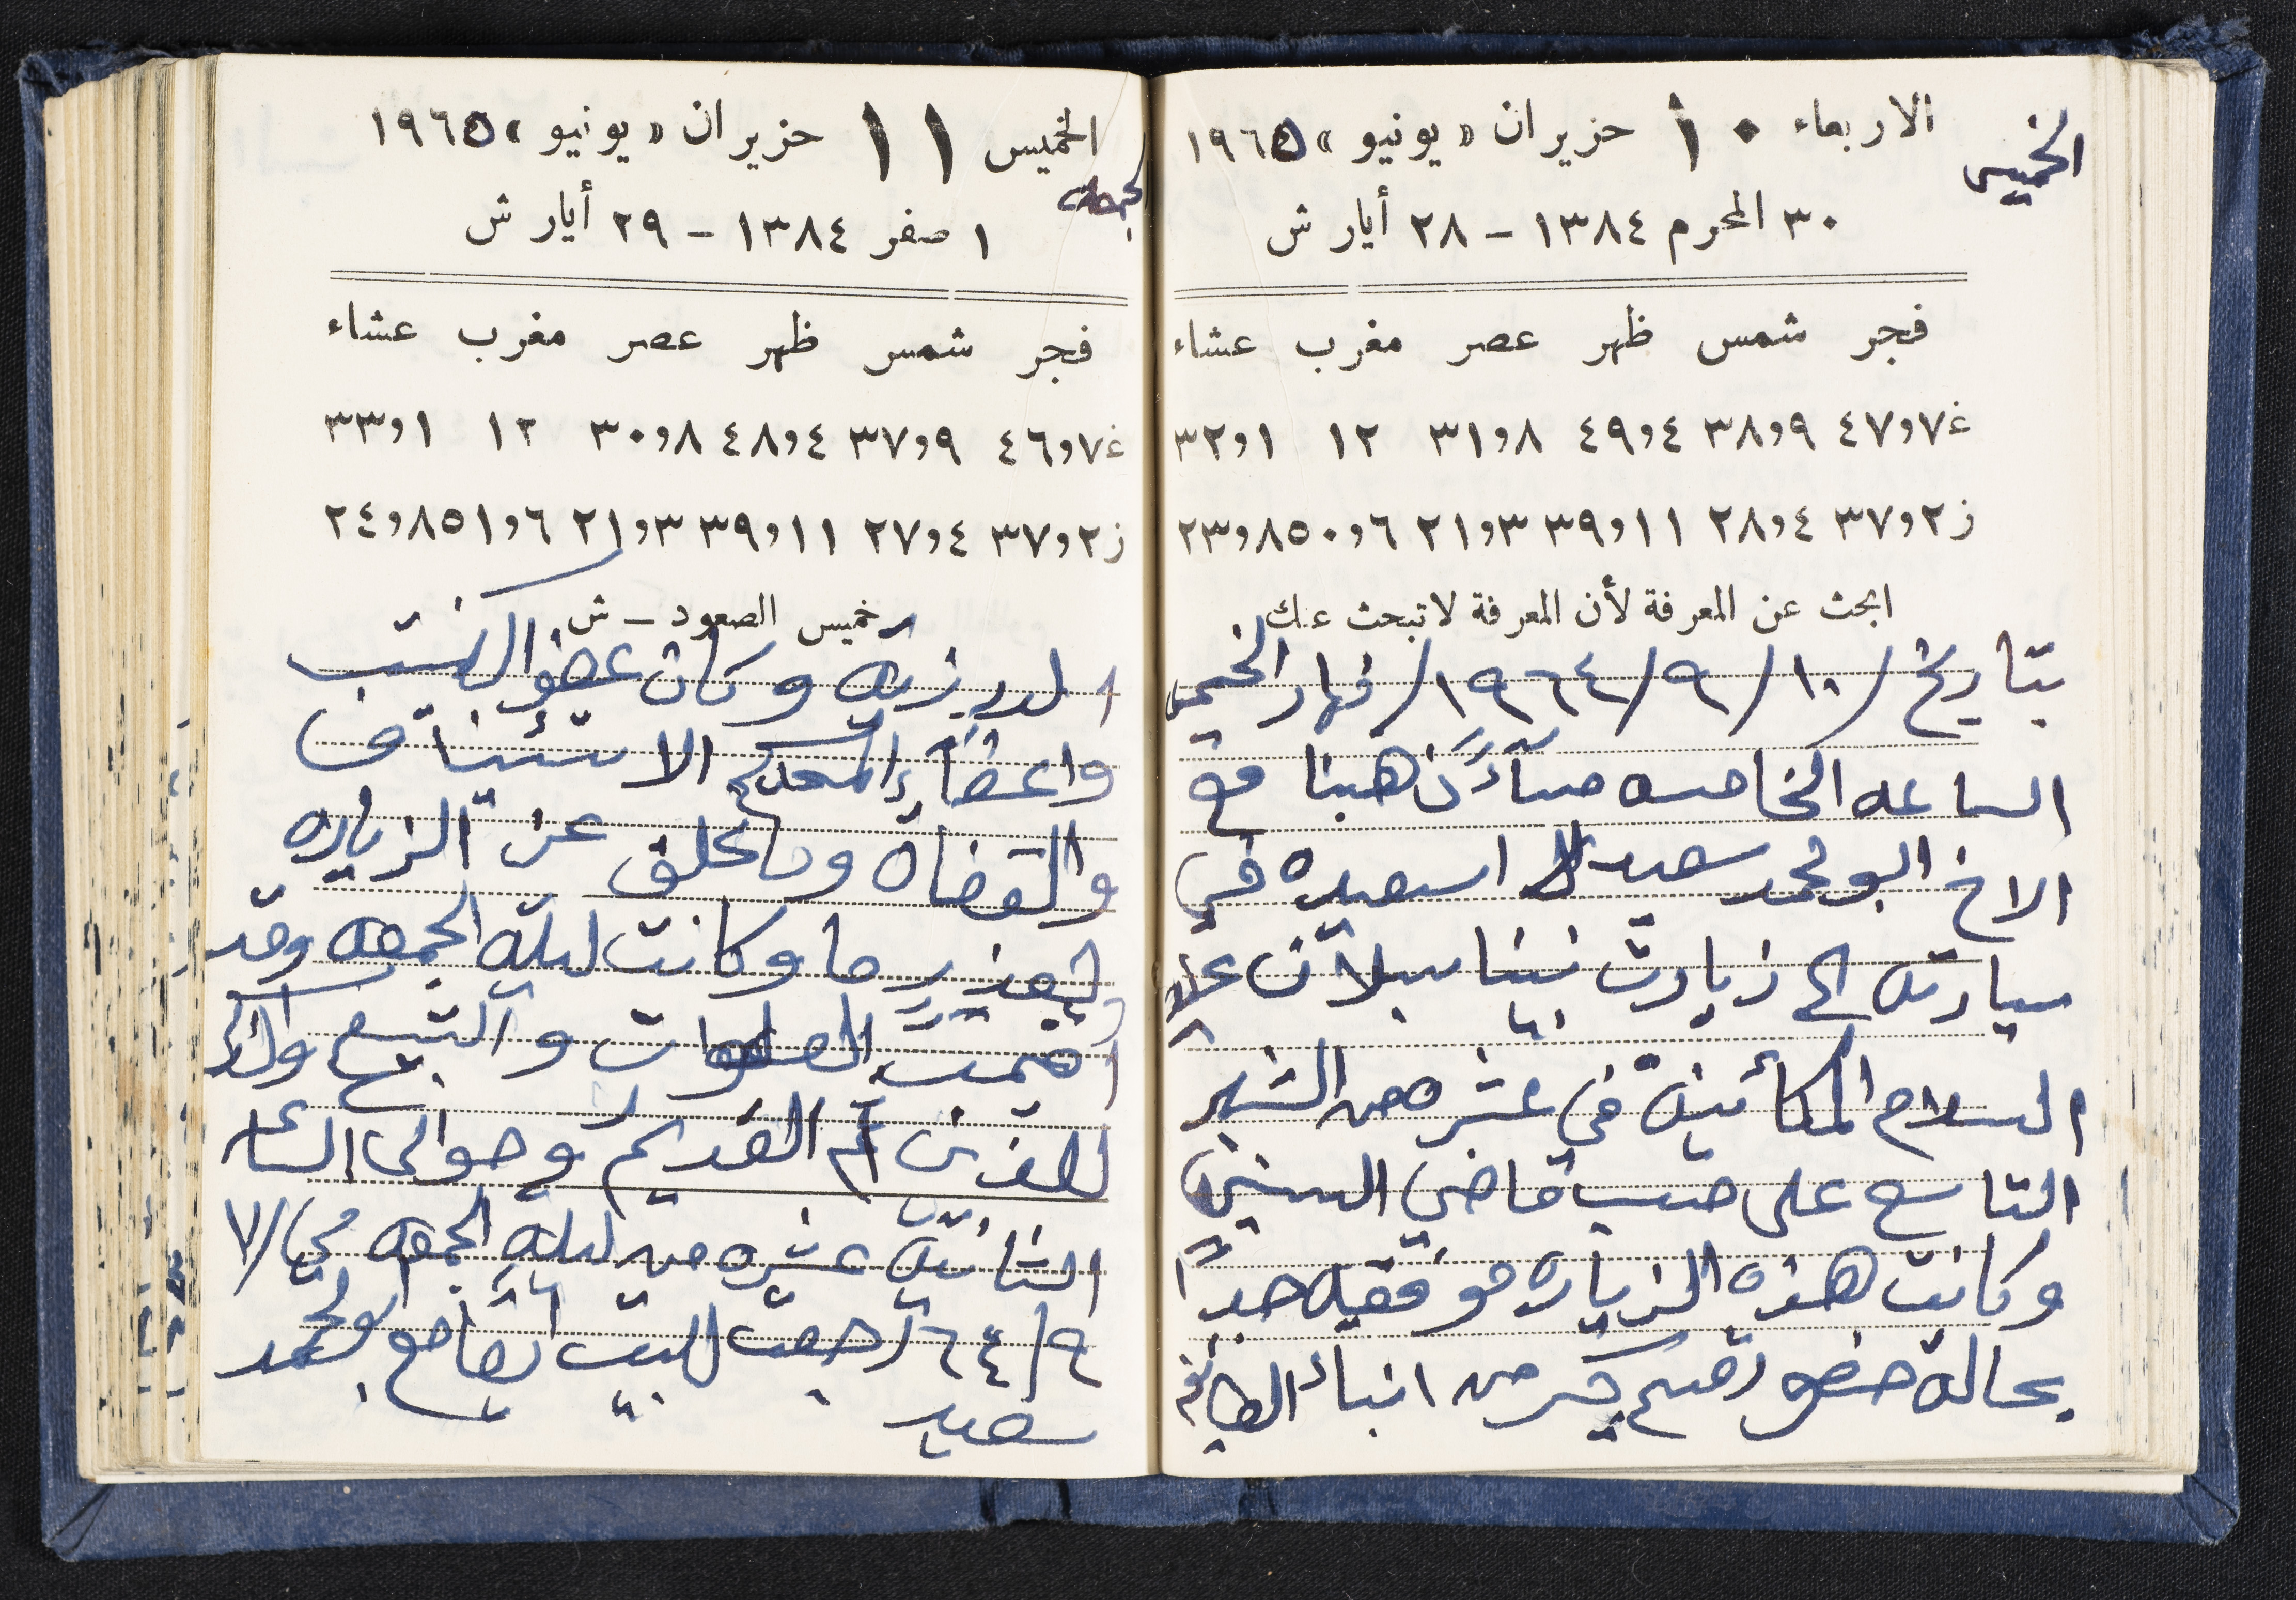 الاربعاء ١٠ حزيران «يونيو» ١٩٦٥
الخميس
٣٠ المحرم ١٣٨٤ – ٢٨ أيار ش
فجر شمس ظهر عصر مغرب عشاء
غ ٤٧و٧ ٣٨و٩ ٤٩و٤ ٣١و٨ ١٢ ٣٢و١
ز ٣٧و٢ ٢٨و٤ ٣٩و١١ ٢١و٣ ٥٠و٦ ٢٣و٨
ابحث عن المعرفة لأن المعرفة لا تبحث عنك
بتاريخ /١٠/٩/١٩٦٤/ نهار الخميس
الساعه الخامسه مساءً ذهبنا مع
الاخ ابو محمد سعيد الاسعيده في
سيارته الى زيارت نبينا سبلان عليه
السلام الكائينة في عشره من الشهر
التاسع على حسب قاضي السنين
وكانت هذه الزياره موفقيه جداً
بحالة حضور قسم كبير من ابناء الطائفه
الخميس ١١ حزيران «يونيو» ١٩٦٥
الجمعه
١ صفر ١٣٨٤ – ٢٩ أيار ش
فجر شمس ظهر عصر مغرب عشاء
غ ٤٦و٧ ٣٧و٩ ٤٨و٤ ٣٠و٨ ١٢ ٣٣و١
ز ٣٧و٢ ٢٧و٤ ٣٩و١١ ٢١و٣ ٥١و٦ ٢٤و٨
خميس الصعود – ش
الدرزيه وكان عضو الكنيست
واعضاء المحكمه الاستئناف
والقضاة وما تخلف عن الزياره
ليعذر ما وكانت ليلة الجمعه وقد
اقيمت الصلوات والتسبيح
القديم وحوالي الساعه
الثانية عشره من ليلة الجمعه
٩/٦٤ رجعت للبيت ايضاً مع ابو محمد
سعيد